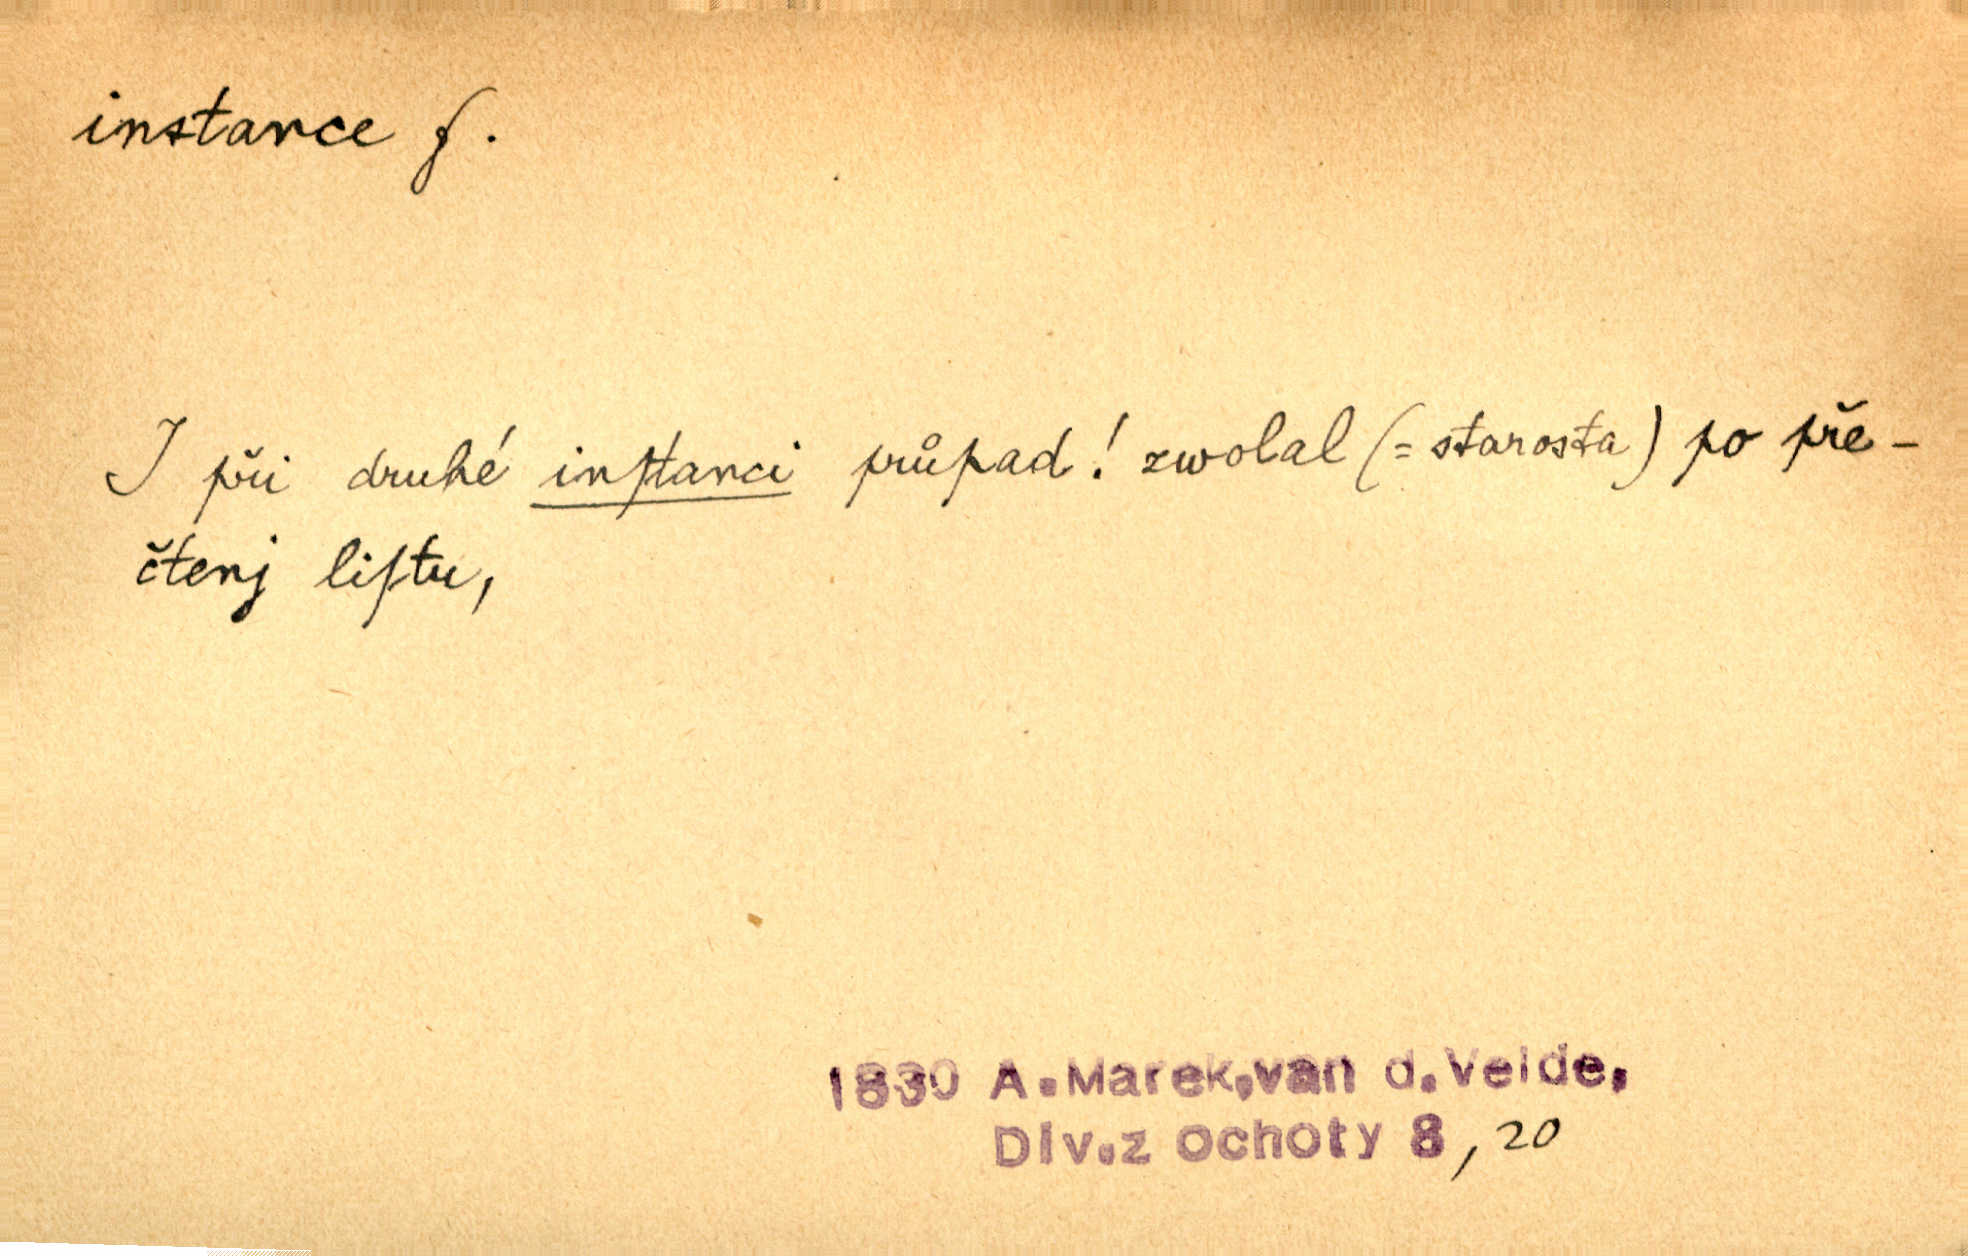 instance f.
I při druhé inſtanci průpad! zwolal (= starosta) po pře-
čtenj liſtu,
1830 A.Marek,van d.Velde,
Div.z ochoty 8, 20